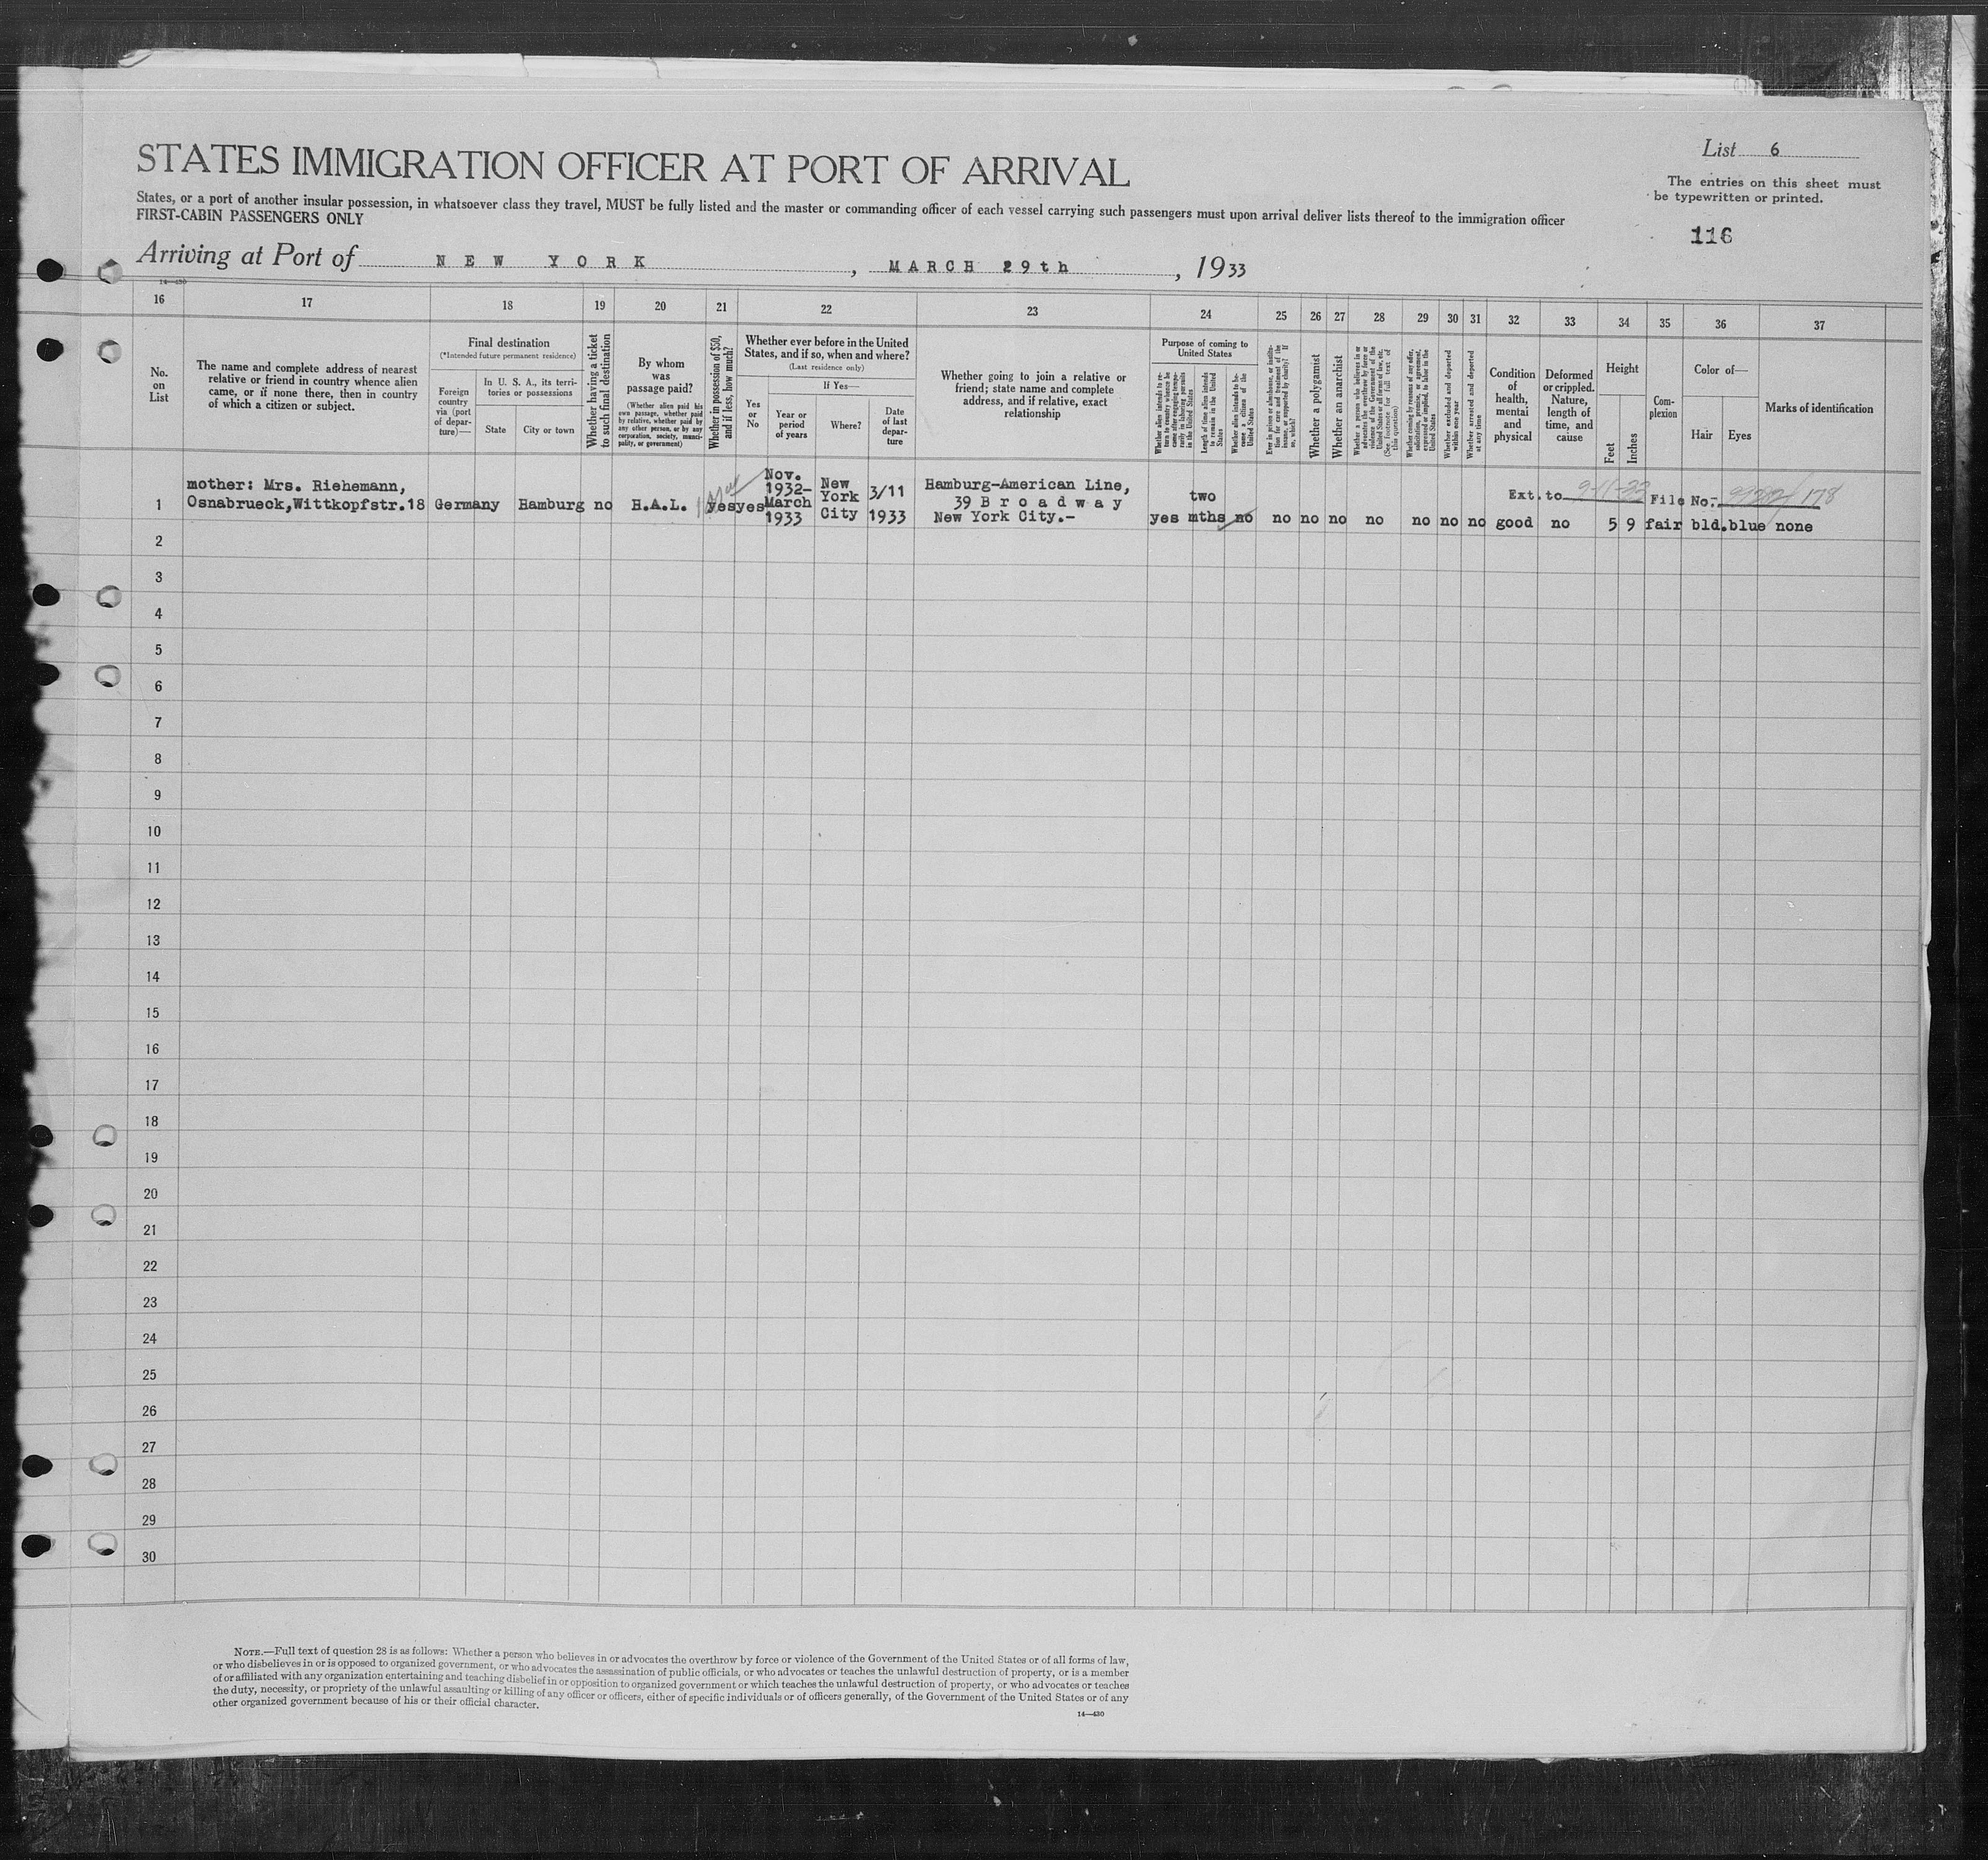 STATES IMMIGRATION OFFICER AT PORT OF ARRIVAL
List 6
The entries on this sheet must
be typewritten or printed.
States, or a port of another insular possession, in whatsoever class they travel, MUST be fully listed and the master or commanding officer of each vessel carrying such passengers must upon arrival deliver lists thereof to the immigration officer
FIRST-CABIN PASSENGERS ONLY
116
Arriving at Port of NEW YORK, MARCH 29th, 1933
14—430
16 17 18 19 20 21 22 23 24 25 26 27 28 29 30 31 32 33 34 35 36 37
No.
on
List
The name and complete address of nearest
relative or friend in country whence alien
came, or if none there, then in country
of which a citizen or subject.
Final destination
(*Intended future permanent residence)
Foreign
country
via (port
of depar-
ture)—
In U. S. A., its terri-
tories or possessions
State
City or town
Whether having a ticket
to such final destination
By whom
was
passage paid?
(Whether alien paid his
own passage, whether paid
by relative, whether paid by
any other person, or by any
corporation, society, munici-
pality, or government)
Whether in possession of $50,
and if less, how much?
Whether ever before in the United
States, and if so, when and where?
(Last residence only)
Yes
or
No
If Yes—
Year or
period
of years
Where?
Date
of last
depar-
ture
Whether going to join a relative or
friend; state name and complete
address, and if relative, exact
relationship
Purpose of coming to
United States
Whether alien intends to re-
turn to country whence he
came after engaging tempo-
rarily in laboring pursuits
in the United States
Length of time alien intends
to remain in the United
States
Whether alien intends to be-
come a citizen of the
United States
Ever in prison or almshouse, or institu-
tion for care and treatment of the
insane, or supported by charity? If
so, which?
Whether a polygamist
Whether an anarchist
Whether a person who believes in or
advocates the overthrow by force or
violence of the Government of the
United States or all forms of law, etc.
(See footnote for full text of
this question)
Whether coming by reasons of any offer,
solicitation, promise, or agreement,
expressed or implied, to labor in the
United States
Whether excluded and deported
within one year
Whether arrested and deported
at any time
Condition
of
health,
mental
and
physical
Deformed
or crippled.
Nature,
length of
time, and
cause
Height
Feet
Inches
Com-
plexion
Color of—
Hair
Eyes
Marks of identification
mother: Mrs. Riehemann,
1 Osnabrueck,Wittkopfstr.18 Germany Hamburg no H.A.L. yes yes
Nov.
1932-
March
1933
New
York
City
3/11
1933
Hamburg-American Line,
39 Broadway
New York City.-
two
yes mths no no no no no no no no good no 5 9 fair bld. blue none
Ext. to 9-11-33 File No. 178
2
3
4
5
6
7
8
9
10
11
12
13
14
15
16
17
18
19
20
21
22
23
24
25
26
27
28
29
30
NOTE.—Full text of question 28 is as follows: Whether a person who believes in or advocates the overthrow by force or violence of the Government of the United States or of all forms of law,
or who disbelieves in or is opposed to organized government, or who advocates the assassination of public officials, or who advocates or teaches the unlawful destruction of property, or is a member
of or affiliated with any organization entertaining and teaching disbelief in or opposition to organized government or which teaches the unlawful destruction of property, or who advocates or teaches
the duty, necessity, or propriety of the unlawful assaulting or killing of any officer or officers, either of specific individuals or of officers generally, of the Government of the United States or of any
other organized government because of his or their official character.
14—430